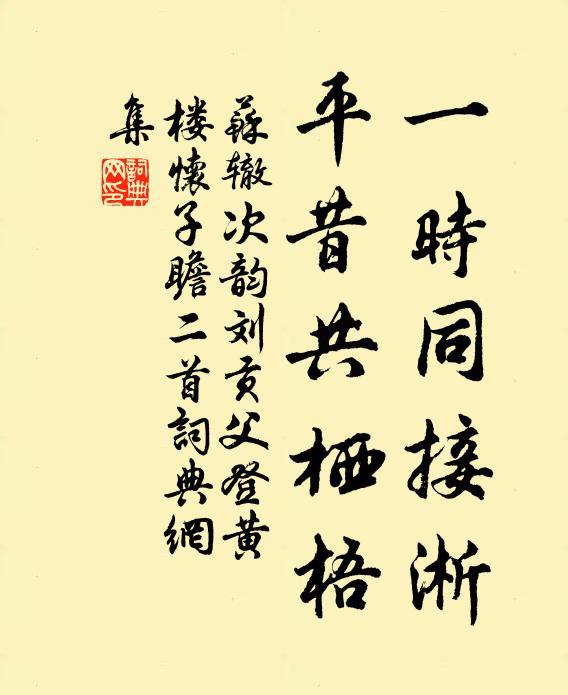 一時同接淅
平昔共栖梧
蘇辙次韵刘贡父登黄
楼懷子瞻二首詞典網
集
詞典
网印